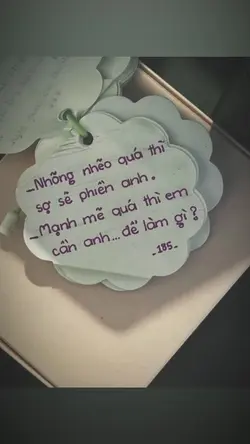 _Nhõng nhẽo quá thì
sợ sẽ phiền anh.
_Mạnh mẽ quá thì em
cần anh...để làm gì?
_185_